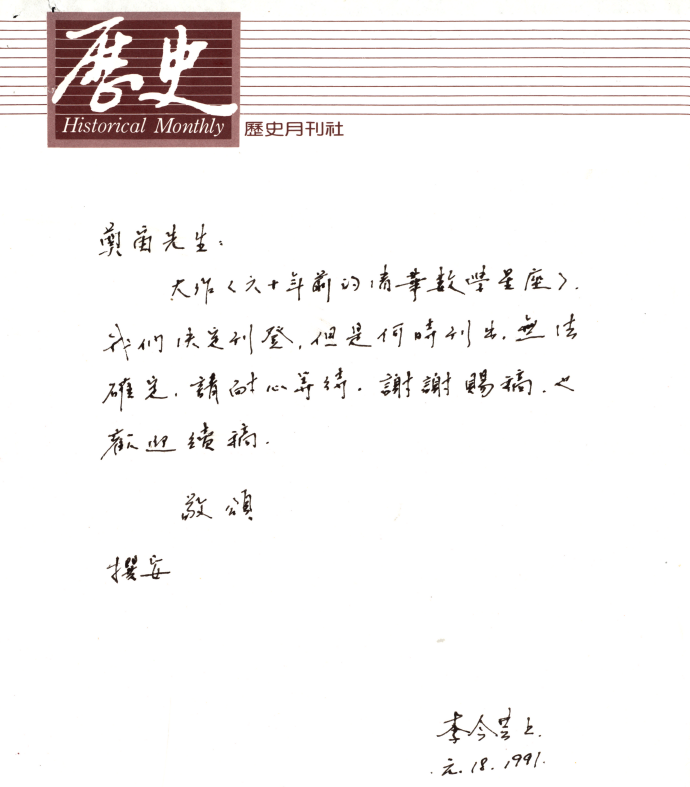 歷史
Historical Monthly 歷史月刊社
先生:
大作〈六十年前的清華數學星座〉,
我們決定刊登,但是何時刊出,無法
確定,請耐心等待。謝謝賜稿,也
歡迎續稿。
敬頌
撰安
李今芸上
元.18.1991.